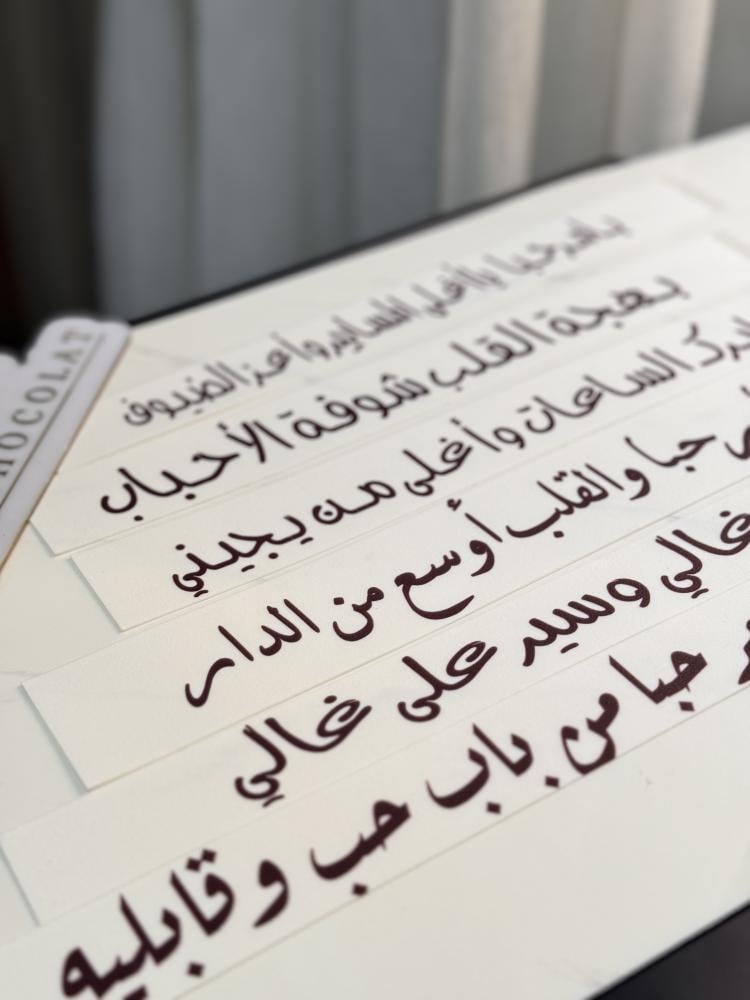 يا مرحبا يا أغلى المسايير وأعز الضيوف
بهجة القلب شوفة الأحباب
أبرك الساعات وأغلى من يجيني
حبا والقلب أوسع من الدار
غالي وسير على غالي
حبا من باب حب وقابليه
HOCOLAT